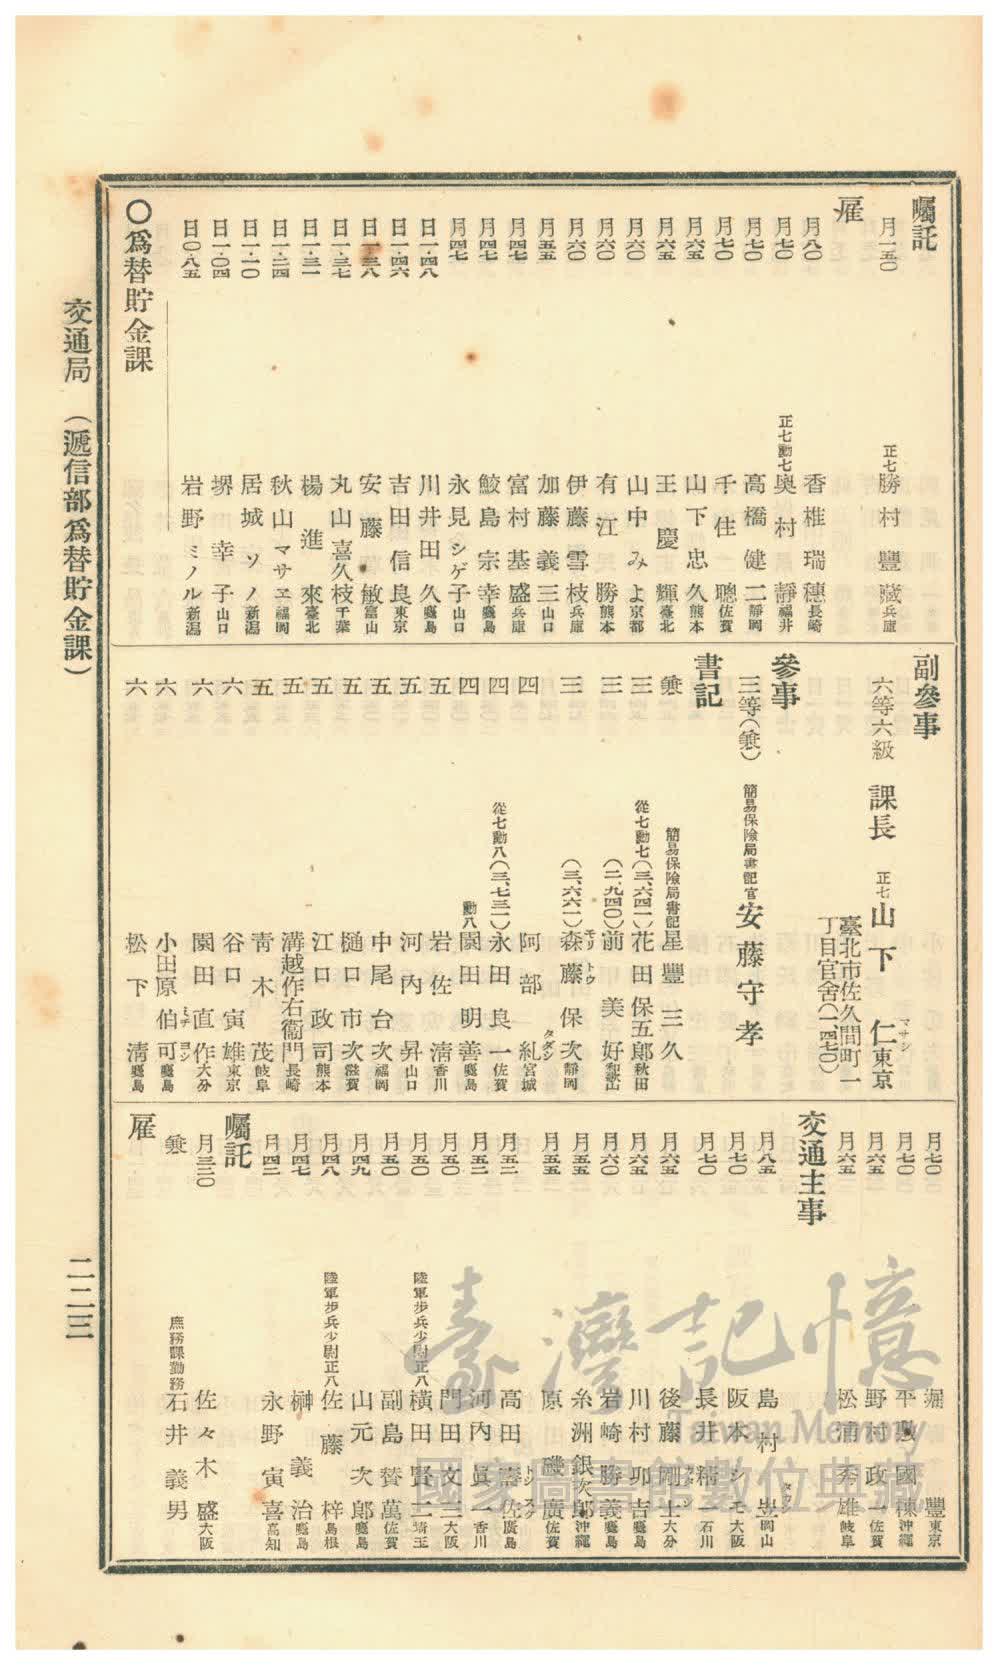 囑託
月一五〇 正七 勝村豐藏 兵庫
雇
月八〇 香椎瑞穗 長崎
月七〇 正七勳七 奧村靜 福井
月七〇 高橋健二 靜岡
月七〇 千住聰 佐賀
月六五 山下忠久 熊本
月六五 王慶輝 臺北
月六〇 山中みよ 京都
月六〇 有江勝 熊本
月六〇 伊藤雪枝 兵庫
月五五 加藤義三 山口
月四七 富村基盛 兵庫
月四七 鮫島宗幸 鹿兒島
月四七 永見シゲ子 山口
日一・四八 川井田久 鹿兒島
日一・四六 吉田信良 東京
日一・三八 安藤敏 富山
日一・三七 丸山喜久枝 千葉
日一・三一 楊進來 臺北
日一・二四 秋山マサヱ 福岡
日一・一〇 居城ソノ 新潟
日一・〇四 堺幸子 山口
日〇・八五 岩野ミノル 新潟
〇爲替貯金課
副參事
六等六級 課長 正七 山下仁 マサシ 東京
臺北市佐久間町一
丁目官舍(一四七〇)
參事
三等(兼) 簡易保險局書記官 安藤守孝
書記
兼 簡易保險局書記 星豐三久
三 從七勳七(三、六四一) 花田保五郎 秋田
三 (二、九四〇) 前美好 和歌山
三 (三、六六一) 森藤保次 モリトウ 靜岡
四 阿部糺 タダシ 宮城
四 從七勳八(三、七三一) 永田良一 佐賀
四 勳八 園田明善 鹿兒島
五 岩佐淸 香川
五 河內昇 山口
五 中尾台次 福岡
五 樋口市次 滋賀
五 江口政司 熊本
五 溝越作右衞門 長崎
五 靑木茂 岐阜
六 谷口寅雄 東京
六 園田直作 大分
六 小田原伯可 ミチヨシ 鹿兒島
六 松下淸 鹿兒島
月七〇 堀豐 東京
月七〇 平敷國棟 沖繩
月六五 野村政一 佐賀
月六五 松浦秀雄 岐阜
交通主事
月八五 島村豈 タカシ 岡山
月七〇 阪本シモ 大阪
月七〇 長井精一 石川
月六五 後藤剛士 大分
月六五 川村卯吉 鹿兒島
月六〇 岩崎勝義 鹿兒島
月五五 糸洲銀次郎 沖繩
月五五 原磯廣 佐賀
月五二 高田壽佐 トシスケ 廣島
月五二 河內眞一 香川
月五〇 門田文三 大阪
月五〇 陸軍步兵少尉正八 橫田賢二 埼玉
月五〇 副島贊萬 佐賀
月四九 山元次郎 鹿兒島
月四八 陸軍步兵少尉正八 佐藤梓 島根
月四七 榊義治 鹿兒島
月四二 永野寅喜 高知
囑託
月三二〇 佐々木盛 大阪
兼 庶務課勤務 石井義男
雇
交通局 (遞信部爲替貯金課)
二二三
臺灣記憶
Taiwan Memory
國家圖書館數位典藏